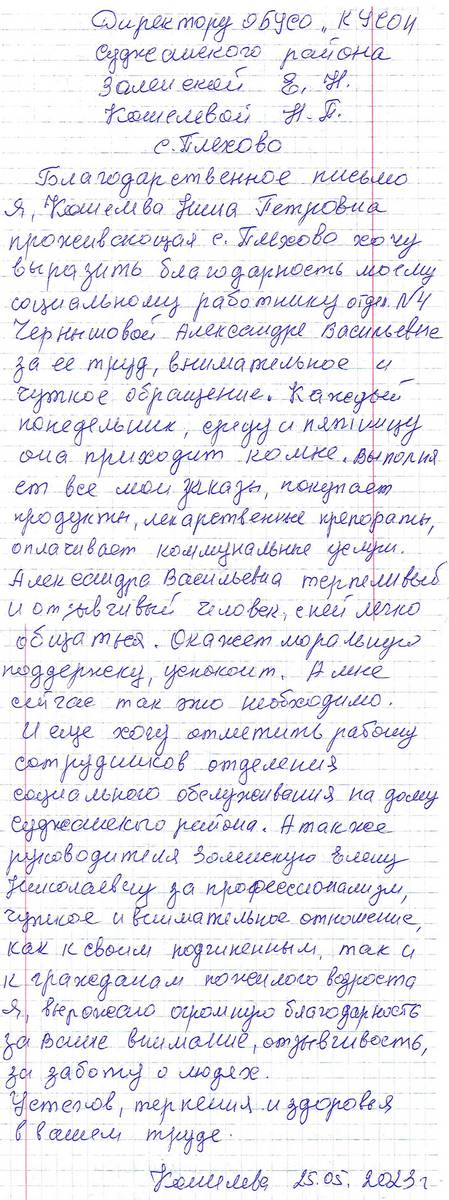 Директору ОБУСО „КЦСОН
Суджанского района
Заленской Е. Н.
Кошелевой Н.П.
с. Плехово
Благодарственное письмо
Я, Кошелева Нина Петровна
проживающая с. Плехово хочу
выразить благодарность моему
социальному работнику отдел. N4
Чернышовой Александре Васильевне
за ее труд, внимательное и
чуткое обращение. Каждый
понедельник, среду и пятницу
она приходит ко мне. Выполня
ет все мои заказы, покупает
продукты, лекарственные препораты,
оплачивает коммунальные услуги.
Александра Васильевна терпеливый
и отзывчивый человек, с ней легко
общаться. Окажет моральную
поддержку, успокоит. А мне
сейчас так это необходимо.
И еще хочу отметить работу
сотрудников отделения
социального обслуживания на дому
Суджанского района. А также
руководителя Заленскую Елену
Николаевну за профессионализм,
чуткое и внимательное отношение,
как к своим подчиненным, так и
к гражданам пожилого возроста
Я, выражаю огромную благодарность
за Ваше внимание, отзывчивость,
за заботу о людях.
Успехов, терпения и здоровья
в вашем труде.
Кошелева 25.05. 2023г